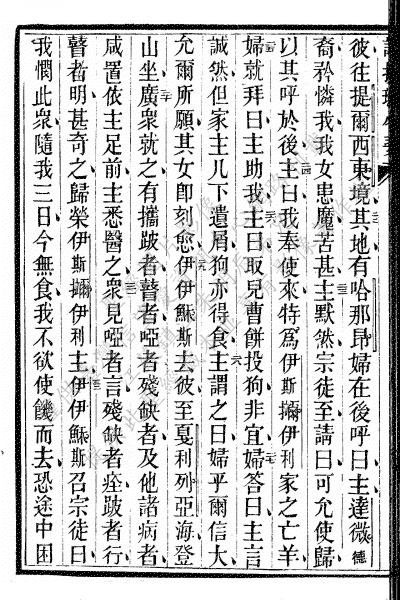 彼徃提爾西東境其地有哈那昂婦在後呼曰主達微德
裔矜憐我我女患魔苦甚主默然宗徒至請曰可允使歸
以其呼於後主曰我奉使來特爲伊斯擓伊利家之亡羊
婦就拜曰主助我主曰取兒曹餠投狗非宜婦答曰主言
誠然但家主几下遺屑狗亦得食主謂之曰婦乎爾信大
允爾所願其女卽刻愈伊伊穌斯去彼至戛利列亞海登
山坐廣衆就之有攜跛者瞽者啞者殘缺者及他諸病者
咸置依主足前主悉醫之衆見啞者言殘缺者痊跛者行
瞽者明甚奇之歸榮伊斯擓伊利主伊伊穌斯召宗徒曰
我憫此衆隨我三日今無食我不欲使饑而去恐途中困